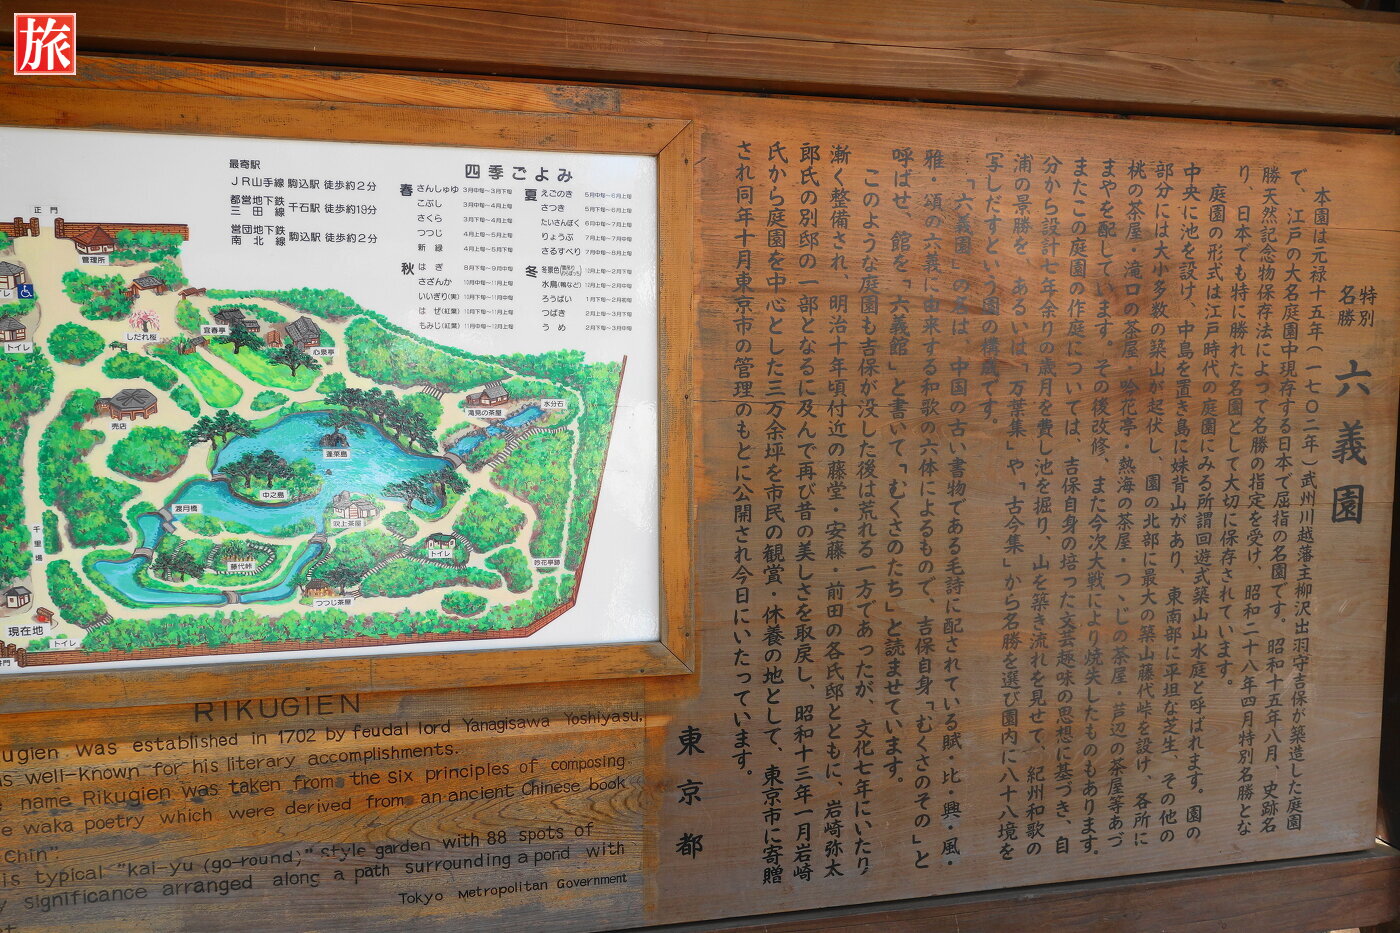 旅
最寄駅
JR山手線 駒込駅 徒歩約2分
都営地下鉄
三田線 千石駅 徒歩約19分
営団地下鉄
南北線 駒込駅 徒歩約2分
四季ごよみ
春 さんしゅゆ 3月中旬~3月下旬
こぶし 3月中旬~4月上旬
さくら 3月下旬~4月上旬
つつじ 4月上旬~5月上旬
新緑 4月上旬~5月下旬
夏 えごのき 5月中旬~6月上旬
さつき 5月下旬~6月上旬
たいさんぼく 6月中旬~7月上旬
りょうぶ 7月上旬~7月中旬
さるすべり 7月中旬~8月上旬
秋 はぎ 8月下旬~9月中旬
さざんか 10月中旬~11月下旬
いいぎり(実) 10月下旬~11月中旬
はぜ(紅葉) 10月下旬~11月上旬
もみじ(紅葉) 11月中旬~12月上旬
冬 冬景色 12月上旬~2月下旬
水鳥(鴨など) 12月上旬~2月下旬
ろうばい 1月下旬~2月初旬
つばき 2月上旬~3月下旬
うめ 2月下旬~3月中旬
正門
管理所
トイレ
しだれ桜
宜春亭
心泉亭
売店
滝見の茶屋
水分石
蓬莱島
中之島
渡月橋
吹上茶屋
千里場
トイレ
藤代峠
つつじ茶屋
妙花亭跡
現在地
トイレ
RIKUGIEN
ugien was established in 1702 by feudal lord Yanagisawa Yoshiyasu,
s well-known for his literary accomplishments.
name Rikugien was taken from the six principles of composing
e waka poetry which were derived from an ancient Chinese book
Chin".
is typical "kai-yu (go-round)" style garden with 88 spots of
y significance arranged along a path surrounding a pond with
Tokyo Metropolitan Government
特別
名勝 六義園
本園は元禄十五年(一七〇二年)武州川越藩主柳沢出羽守吉保が築造した庭園
で、江戸の大名庭園中現存する日本で屈指の名園です。昭和十五年八月、史跡名
勝天然記念物保存法によって名勝の指定を受け、昭和二十八年四月特別名勝とな
り、日本でも特に勝れた名園として大切に保存されています。
庭園の形式は江戸時代の庭園にみる所謂回遊式築山山水庭と呼ばれます。園の
中央に池を設け、中島を置き島に妹背山があり、東南部に平坦な芝生、その他の
部分には大小多数の築山が起伏し、園の北部に最大の築山藤代峠を設け、各所に
桃の茶屋、滝口の茶屋・吟花亭・熱海の茶屋・つゝじの茶屋・芦辺の茶屋等あづ
まやを配しています。その後改修、また今次大戦により焼失したものもあります。
またこの庭園の作庭については、吉保自身の培った文芸趣味の思想に基づき、自
分から設計七年余りの歳月を費し池を掘り、山を築き流れを見せて、紀州和歌の
浦の景勝を、あるいは「万葉集」や「古今集」から名勝を選び園内に八十八境を
写しだすという園の構成です。
「六義園」の名は、中国の古い書物である毛詩に配されている賦・比・興・風・
雅・頌の六義に由来する和歌の六体によるもので、吉保自身「むくさのその」と
呼ばせ、館を「六義館」と書いて「むくさのたち」と読ませています。
このような庭園も吉保が没した後は荒れる一方であったが、文化七年にいたり、
漸く整備され、明治十年頃付近の藤堂・安藤・前田の各氏邸とともに、岩崎弥太
郎氏の別邸の一部となるに及んで再び昔の美しさを取戻し、昭和十三年一月岩崎
氏から庭園を中心とした三万余坪を市民の観賞・休養の地として、東京市に寄贈
され同年十月東京市の管理のもとに公開され今日にいたっています。
東京都